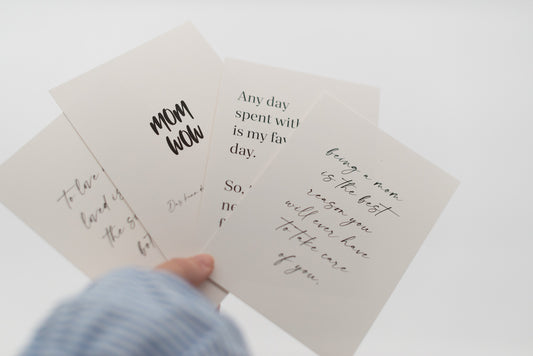 to love
loved is
the s
bot
MOM
WOW
Any day
spent with
is my fav
day.
So,
ne
being a mom
is the best
reason you
will ever have
to take care
of you.